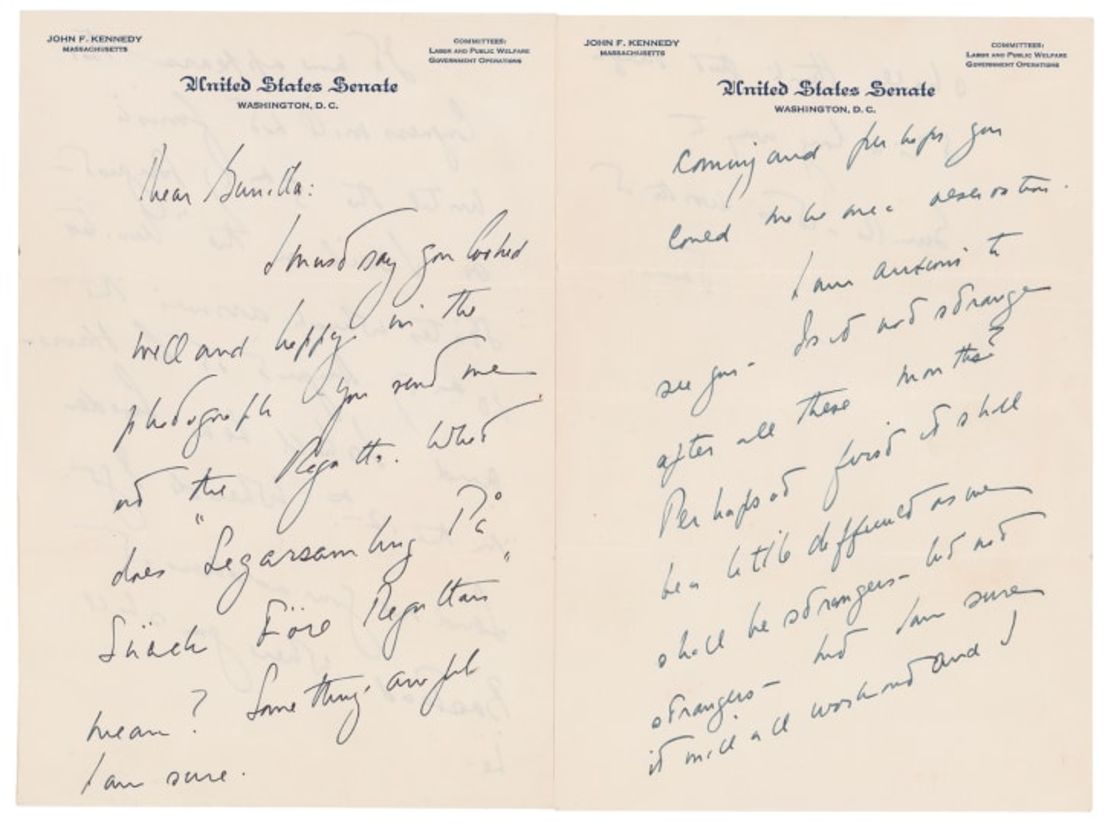 JOHN F. KENNEDY
MASSACHUSETTS
COMMITTEES:
LABOR AND PUBLIC WELFARE
GOVERNMENT OPERATIONS
United States Senate
WASHINGTON, D. C.
Dear Gunilla:
I must say you looked
well and happy in the
photograph you send me
at the Regatta. What
does "Segarsambling På
Snäck Före Regattan"
mean? Something awful
I am sure.
JOHN F. KENNEDY
MASSACHUSETTS
COMMITTEES:
LABOR AND PUBLIC WELFARE
GOVERNMENT OPERATIONS
United States Senate
WASHINGTON, D. C.
coming and perhaps you
could make me a reservation.
I am anxious to
see you - Is it not strange
after all these months?
Perhaps at first it shall
be a little difficult as we
shall be strangers - but not
strangers - but I am sure
it will all work out and I